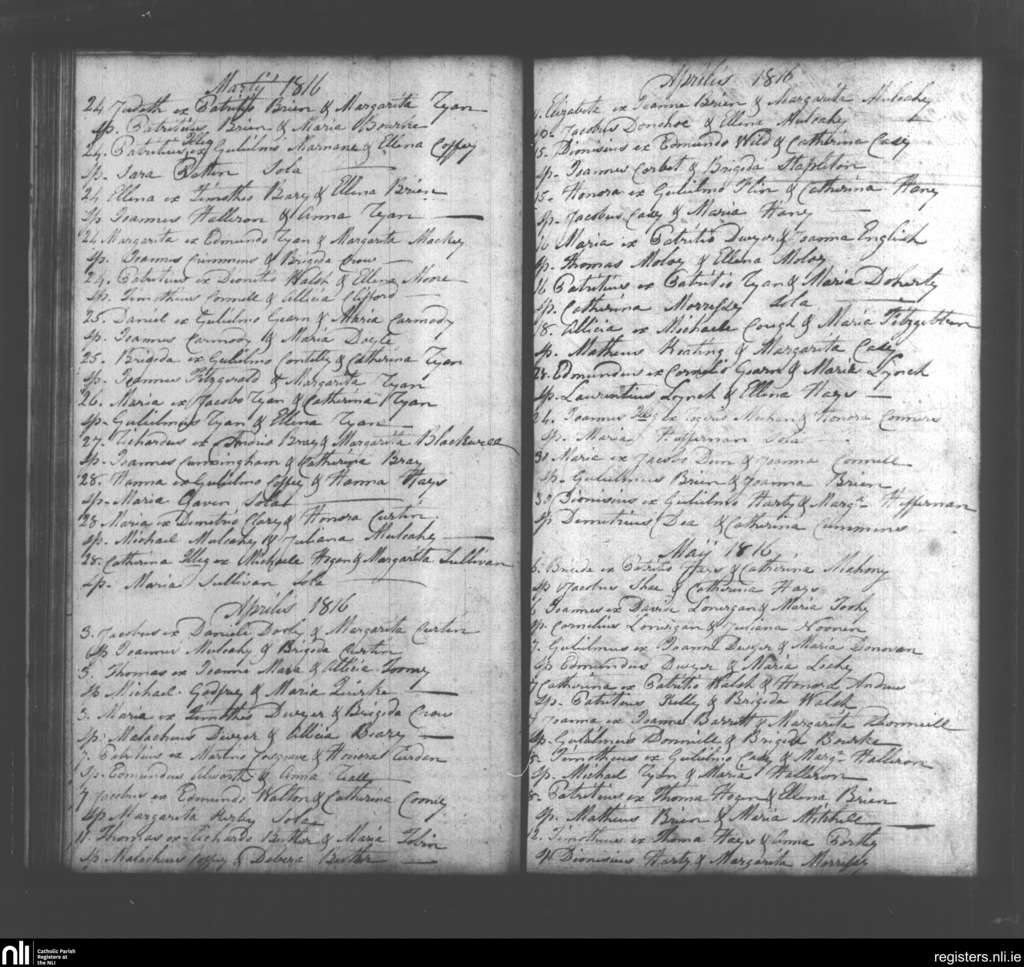 Martij 1816
24 Judith ex Patritio Brien & Margarita Ryan
Sp. Patritius Brien & Maria Bourke
24. Patritius Illeg ex Gulielmo Marnane & Ellena Coffey
Sp. Sara Patton Sola
24 Ellena ex Timotheo Beary & Ellena Brien
Sp Joannes Halloron & Anna Ryan
24 Margarita ex Edmundo Ryan & Margarita Mackey
Sp. Joannes Cummins & Brigida Crow
24. Patritius ex Dionitio Walsh & Ellena Mone
Sp. Timothius Connell & Allicia Clifford
25. Daniel ex Gulielmo Gearn & Maria Carmody
Sp. Joannes Carmody & Maria Doyle
25. Brigida ex Gulielmo & Catherina Ryan
Sp. Joannes Fitzgerald & Margarita Ryan
26. Maria ex Jacobo Ryan & Catherina Ryan
Sp. Gulielmus Ryan & Ellena Ryan
27. Richardus ex Bray & Margarita
Sp. Joannes Cunningham & Catherina Bray
28. Hanna ex Gulielmo Coffey & Hanna Hays
Sp. Maria Gavin Sola
28 Maria ex Demetrio Clary & Honora Curtin
Sp. Michael Mulcahy & Juliana Mulcahy
28. Catherina Illeg ex Michaele Hogan & Margarita Sullivan
Sp. Maria Sullivan Sola
Aprilis 1816
3. Jacobus ex Daniele Dooly & Margarita Curtin
Sp Joannes Mulcahy & Brigida Curtin
3. Thomas ex Joanne Mara & Allicia Toomy
Sp Michael Godfrey & Maria Quirke
3. Maria ex Timotheo Dwyer & Brigida Crow
Sp. Malachius Dwyer & Allicia Beary
7. Patritius ex Martino Cosgrave & Honora Curden
Sp. Edmundus Alworth & Anna
7 Jacobus ex Edmundo Walton & Catherina Cooney
Sp Margarita Kirby Sola
11 Thomas ex Richardo Butler & Maria Tobin
Sp Malachius Coffey & Debera Butler
Aprilis 1816
Elizabeth ex Joanne Brien & Margarita Mulcahy
Sp. Jacobus Donohoe & Ellena Mulcahy
15. Dionisius ex Edmundo Wild & Catherina Casey
Sp. Joannes Corbet & Brigida Stapleton
15. Honora ex Gulielmo Flin & Catherina Hany
Sp. Jacobus Casey & Maria Hany
16 Maria ex Patritio Dwyer & Joanna English
Sp. Thomas Moloy & Ellena Moloy
16 Patritius ex Patritio Ryan & Maria Doherty
Sp. Catherina Morrissey Sola
18. Allicia ex Michaele Cough & Maria Fitzgibbon
Sp. Matheus Keating & Margarita Casey
28. Edmundus ex Cornelio Gearn & Maria Lynch
Sp. Laurentius Lynch & Ellena Hays
Joannes Illeg ex Mehan & Honora Connors
Sp. Maria Heffernan Sola
30 Maria ex Jacobo Dun & Joanna Connell
Sp. Gulielmus Brien & Joanna Brien
30 Dionisius ex Gulielmo Harty & Marga Heffernan
Sp Demetrius Dea & Catherina Cummins
Maij 1816
6. Brieda ex Patritio Hays & Catherina Mahony
Sp Jacobus Shae & Catherina Hays
6 Joannes ex Davide Lonergan & Maria Toohy
Sp. Cornelius Lonergan & Juliana Noonen
7. Gulielmus ex Joanne Dwyer & Maria Donovan
Sp Edmundus Dwyer & Maria Leahy
7 Catherina ex Patritio Walsh & Honora Andrus
Sp. Patritius Kelly & Brigida Walsh
7 Joanna ex Joanne Barrett & Margarita Bonnell
Sp. Gulielmus Bonnell & Brigida Bourke
8. Timotheus ex Gulielmo Casey & Marga Halloron
Sp. Michael Ryan & Maria Halloron
8. Patritius ex Thoma Hogan & Ellena Brien
Sp. Matheus Brien & Maria Mitchell
12. Timotheus ex Thoma Hays & Anna
Sp Dionisius Harty & Margarita Morrissey
nli
Catholic Parish
Registers at
the NLI
registers.nli.ie